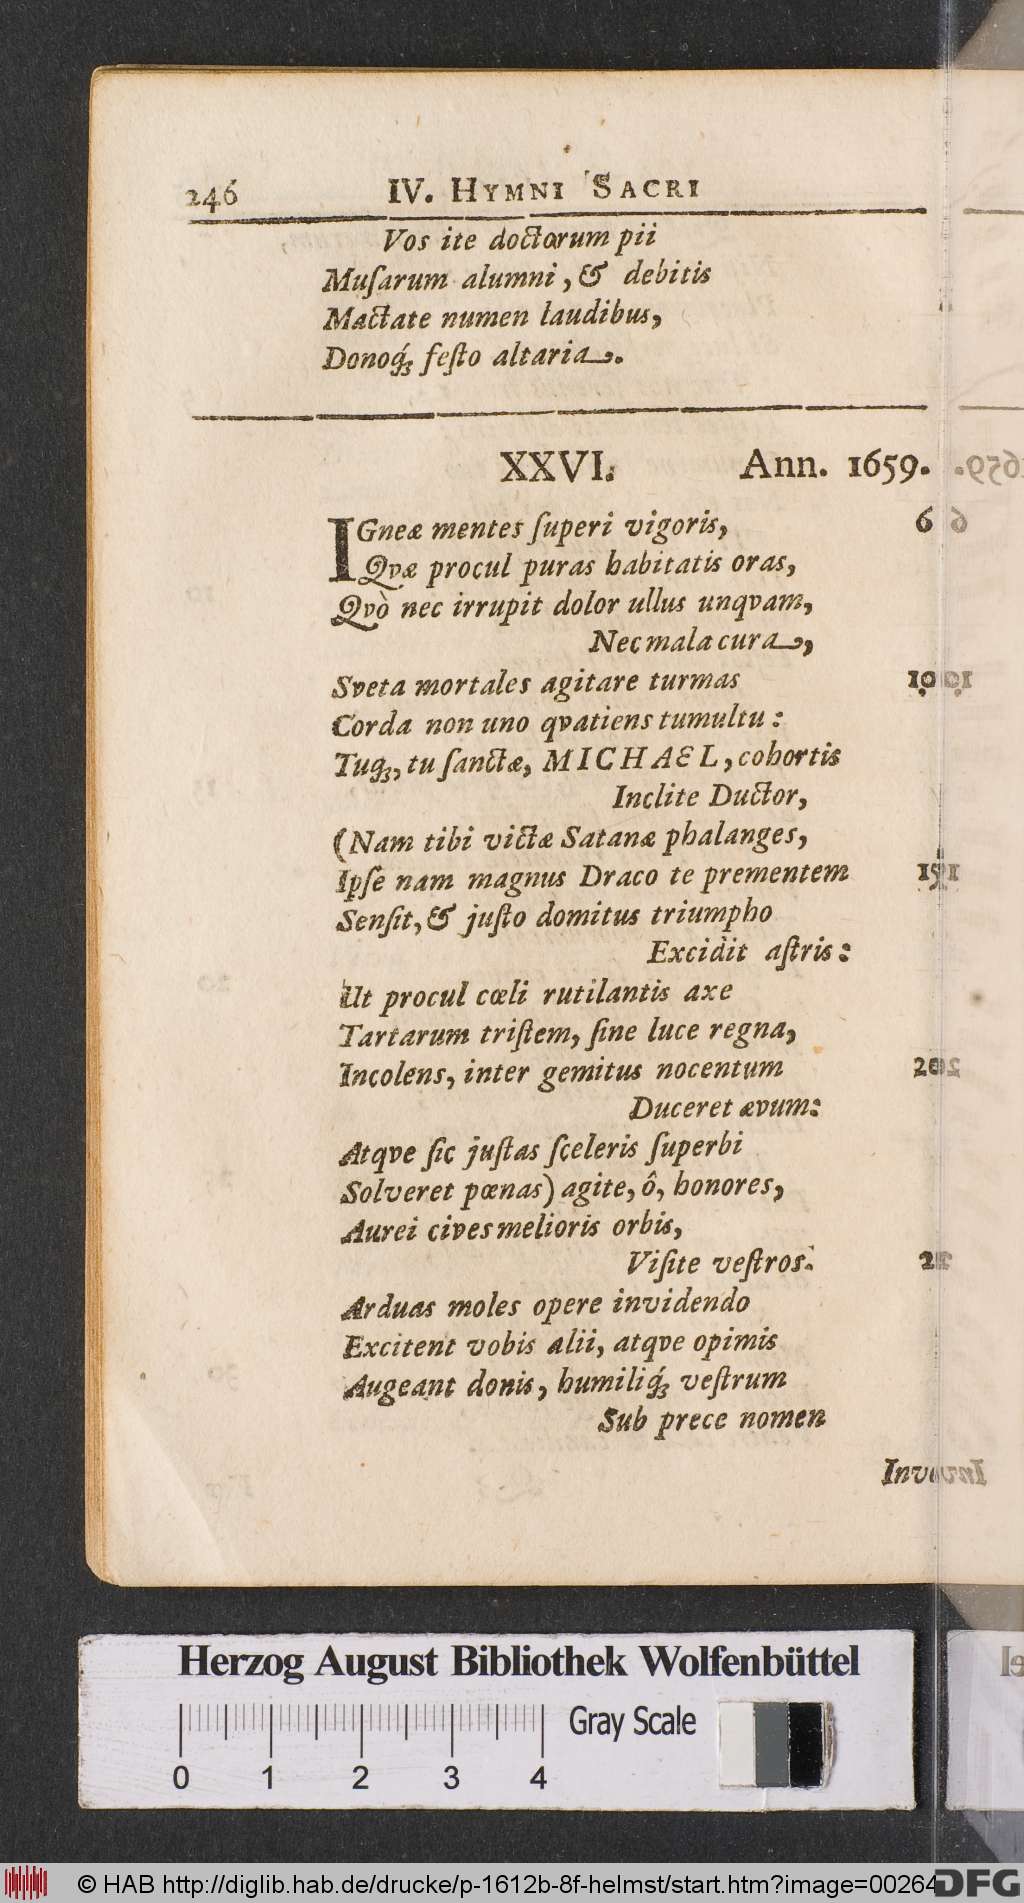 246 IV. HYMNI SACRI
Vos ite doctorum pii
Muſarum alumni, & debitis
Mactate numen laudibus,
Donoq́; feſto altaria.
XXVI. Ann. 1659.
IGneæ mentes ſuperi vigoris, 6
Qvæ procul puras habitatis oras,
Qvò nec irrupit dolor ullus unqvam,
Nec mala cura,
Sveta mortales agitare turmas 10
Corda non uno qvatiens tumultu:
Tuq;, tu ſanctæ, MICHAEL, cohortis
Inclite Ductor,
(Nam tibi victæ Satanæ phalanges,
Ipſe nam magnus Draco te prementem 15
Senſit, & juſto domitus triumpho
Excidit aſtris:
Ut procul cœli rutilantis axe
Tartarum triſtem, ſine luce regna,
Incolens, inter gemitus nocentum 20
Duceret ævum:
Atqve ſic juſtas ſceleris ſuperbi
Solveret pœnas) agite, ô, honores,
Aurei cives melioris orbis,
Viſite veſtros.
Arduas moles opere invidendo
Excitent vobis alii, atqve opimis
Augeant donis, humiliq́; veſtrum
Sub prece nomen
Herzog August Bibliothek Wolfenbüttel
Gray Scale
0 1 2 3 4
© HAB http://diglib.hab.de/drucke/p-1612b-8f-helmst/start.htm?image=00264
DFG